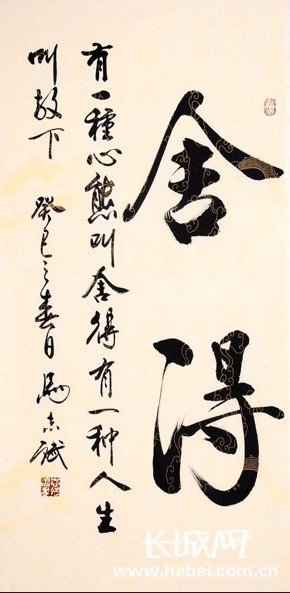 舍得
有一種心態叫舍得有一种人生
叫放下 癸巳之春日
长城网
www.hebei.com.cn